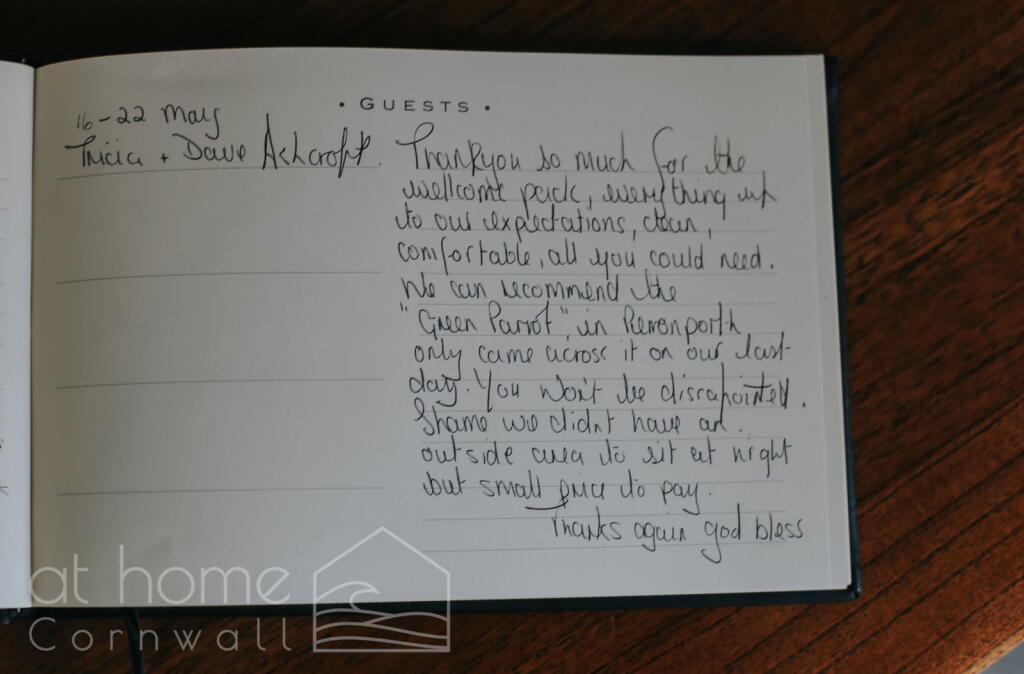 • GUESTS •
16-22 May
Tricia + Dave Ashcroft.
Thankyou so much for the
wellcome pack, everything up
to our expectations, clean,
comfortable, all you could need.
We can recommend the
"Green Parrot", in Perrenporth
only came across it on our last
day. You won't be dissapointed.
Shame we didnt have an
outside area to sit at night
but small price to pay.
Thanks again god bless
at home
Cornwall